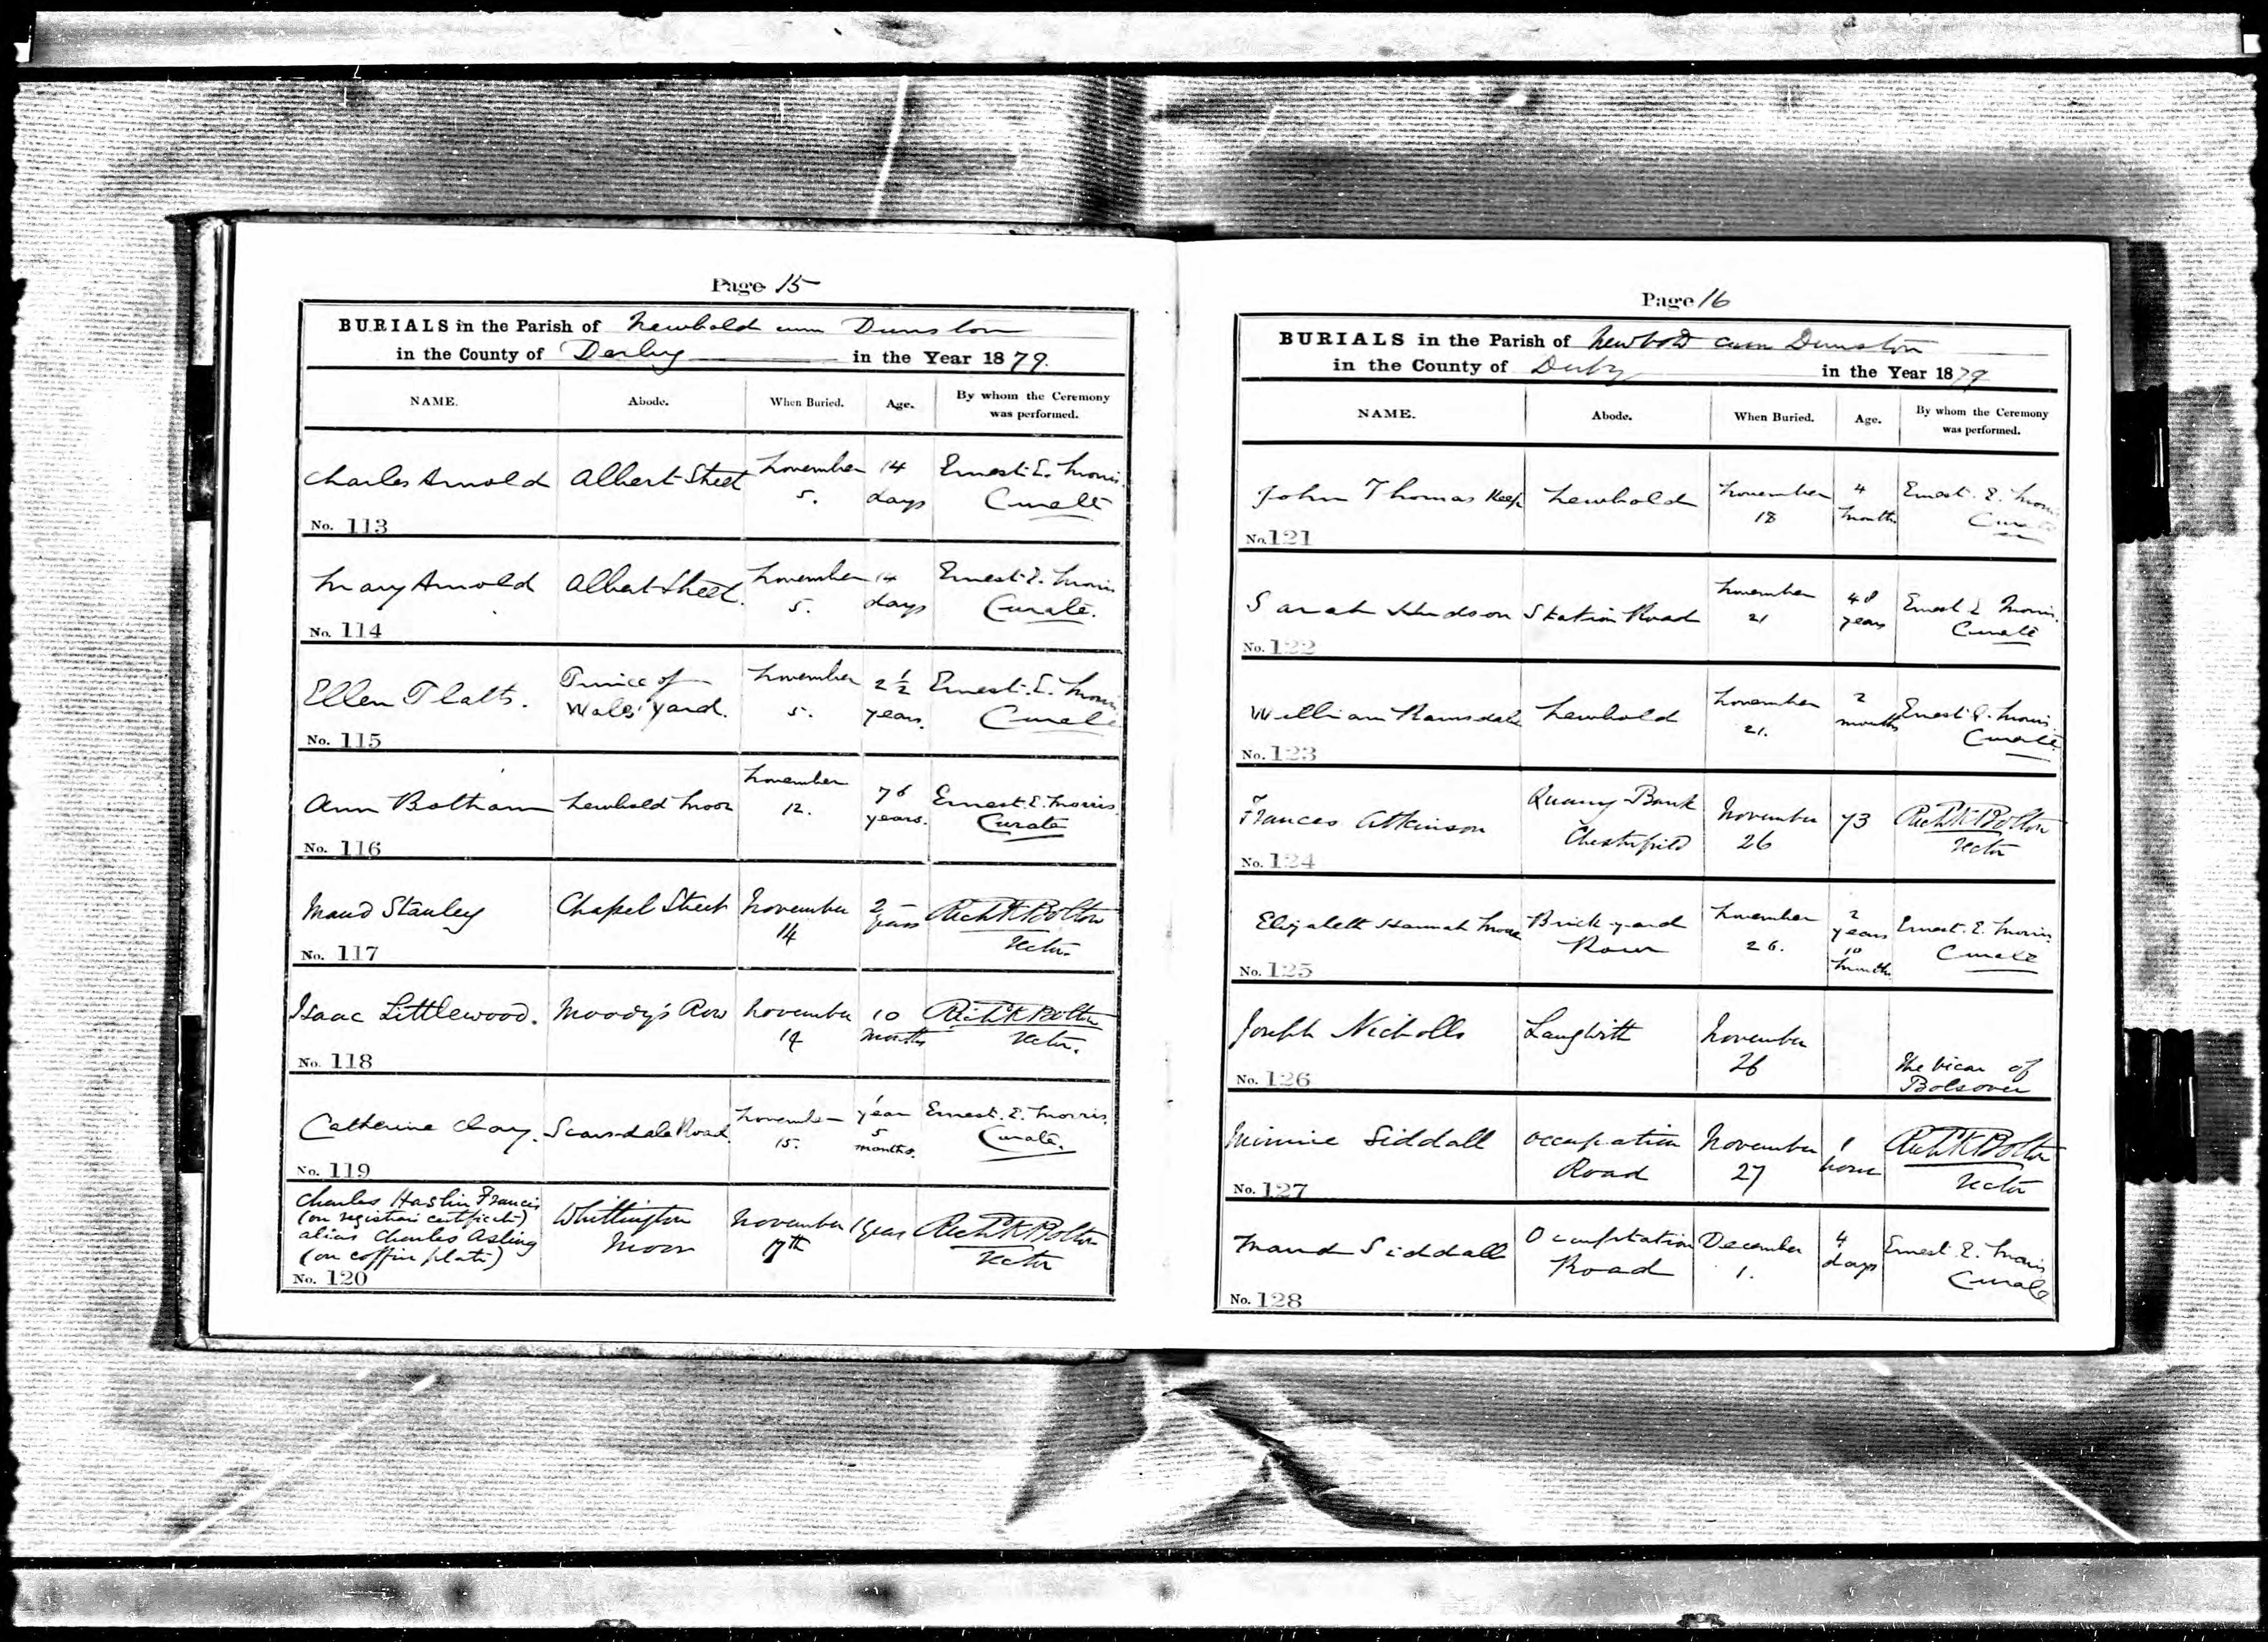 Page 15
BURIALS in the Parish of Newbold cum Dunston
in the County of Derby in the Year 1879.
NAME. Abode. When Buried. Age. By whom the Ceremony was performed.
Charles Arnold Albert Street November 5. 14 days Ernest E. Morris. Curate
No. 113
Mary Arnold Albert Street. November 5. 14 days Ernest E. Morris Curate.
No. 114
Ellen Platts. Prince of Wales' Yard. November 5. 2½ years. Ernest. E. Morris Curate
No. 115
Ann Botham Newbold Moor November 12. 76 years. Ernest E. Morris. Curate
No. 116
Maud Stanley Chapel Street November 14 2 years Richd K Bolton Rector.
No. 117
Isaac Littlewood. Moody's Row November 14 10 months Richd K Bolton Rector.
No. 118
Catherine Clay. Scarsdale Road November 15. 1 year 5 months. Ernest. E. Morris. Curate.
No. 119
Charles Haslin Francis
(on registrars certificate)
alias Charles Asling
(on coffin plate) Whittington Moor November 17th 1 year Richd K Bolton Rector
No. 120
Page 16
BURIALS in the Parish of Newbold cum Dunston
in the County of Derby in the Year 1879
NAME. Abode. When Buried. Age. By whom the Ceremony was performed.
John Thomas Newbold November 18 4 months Ernest. E. Morris Curate
No. 121
Sarah Hudson Station Road November 21 48 years Ernest E Morris. Curate
No. 122
William Ramsdale Newbold November 21. 2 months Ernest E. Morris. Curate
No. 123
Frances Atkinson Quarry Bank Chesterfield November 26 73 Richd K Bolton Rector
No. 124
Elizabeth Hannah Brick-yard Row November 26. 2 years 10 months Ernest. E. Morris. Curate
No. 125
Joseph Nicholls Langwith November 26 The Vicar of Bolsover
No. 126
Minnie Siddall Occupation Road November 27 1 hour Richd K Bolton Rector
No. 127
Maud Siddall Occupation Road December 1. 4 days Ernest E. Morris Curate
No. 128